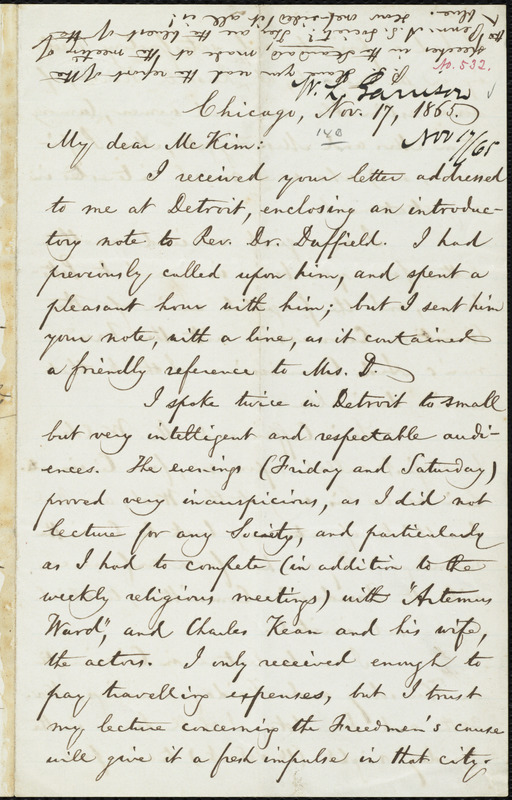 P. S. Have you read the report of the
speeches in the Standard, made at the meeting of
the Penn. A. S. Society? They are the bluest of the
blue. How one-sided it all is!
No. 532.
W. L. Garrison
Chicago, Nov. 17, 1865.
Nov 17/65
My dear McKim:
I received your letter addressed
to me at Detroit, enclosing an introduc-
tory note to Rev. Dr. Duffield. I had
previously called upon him, and spent a
pleasant hour with him; but I sent him
your note, with a line, as it contained
a friendly reference to Mrs. D.
I spoke twice in Detroit to small
but very intelligent and respectable audi-
ences. The evenings (Friday and Saturday)
proved very inauspicious, as I did not
lecture for any Society, and particularly
as I had to compete (in addition to the
weekly religious meetings) with "Artemus
Ward," and Charles Kean and his wife,
the actors. I only received enough to
pay travelling expenses, but I trust
my lecture concerning the Freedmen's cause
will give it a fresh impulse in that city.